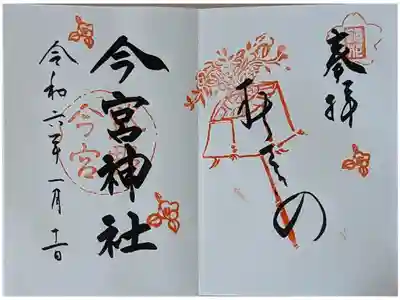 奉拝
今宮神社
今宮
令和六年一月十一日